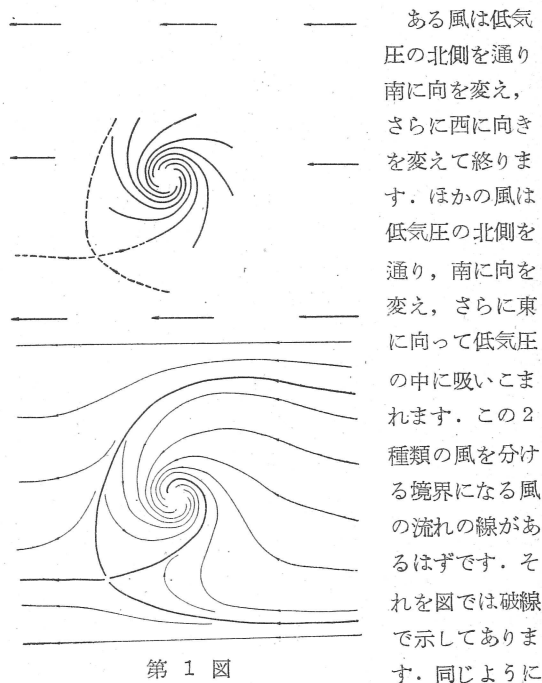 ある風は低気
圧の北側を通り
南に向を変え，
さらに西に向き
を変えて終りま
す．ほかの風は
低気圧の北側を
通り，南に向を
変え，さらに東
に向って低気圧
の中に吸いこま
れます．この2
種類の風を分け
る境界になる風
の流れの線があ
るはずです．そ
れを図では破線
で示してありま
す．同じように
第 1 図